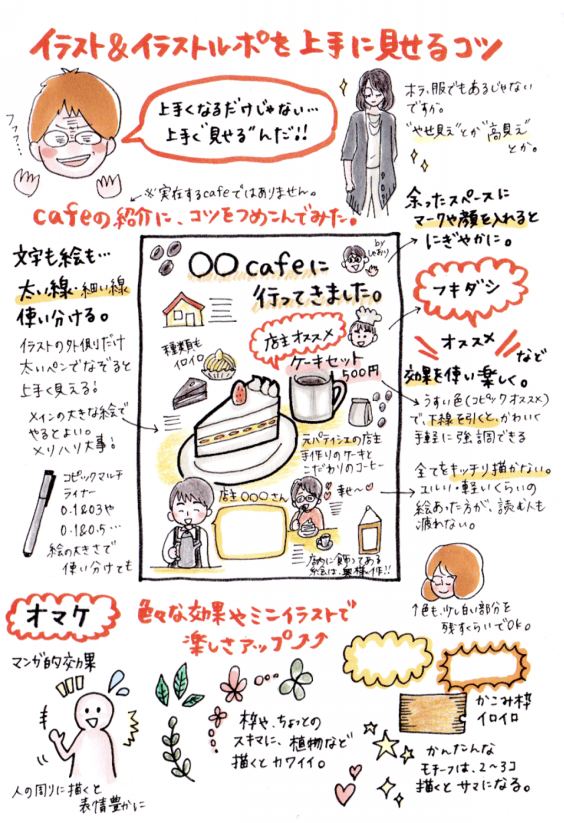 イラスト&イラストルポを上手に見せるコツ
上手くなるだけじゃない…
上手く"見せる"んだ!!
フフフ…
ホラ、服でもあるじゃない
ですか。
"やせ見え"とか"高見え"
とか。
※実在するcafeではありません。
cafeの紹介に、コツをつめこんでみた。
文字も絵も…
太い線・細い線
使い分ける。
イラストの外側だけ
太いペンでなぞると
上手く見える!
メインの大きな絵で
やるとよい。
メリハリ大事!
コピックマルチ
ライナー
0.1&03や
0.1&0.5…
絵の大きさで
使い分けても
〇〇cafeに
行ってきました。
by
しおり
種類も
イロイロ
店主オススメ
ケーキセット
500円
元パティシエの店主
手作りのケーキと
こだわりのコーヒー
店主〇〇〇さん
幸せ〜♥
店内に飾ってある
絵は、奥様の作!!
余ったスペースに
マークや顔を入れると
にぎやかに。
フキダシ
オススメ
など
効果を使い楽しく。
うすい色(コピックオススメ)
で、下線を引くと、かわいく
手軽に強調できる
全てをキッチリ描かない。
ユルい・軽いくらいの
絵あった方が、読む人も
疲れない。
↑色も、少し白い部分を
残すくらいでOK。
オマケ
色々な効果やミニイラストで
楽しさアップ⤴⤴
マンガ的効果
人の周りに描くと
表情豊かに
枠や、ちょっとの
スキマに、植物など
描くとカワイイ。
かこみ枠
イロイロ
かんたんな
モチーフは、2〜3コ
描くとサマになる。